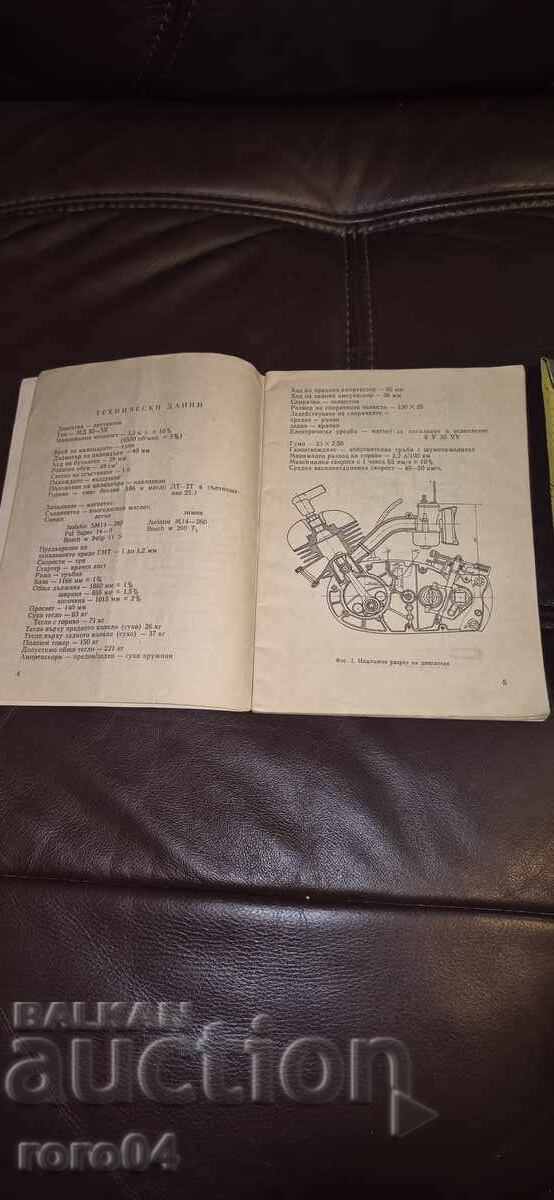 ТЕХНИЧЕСКИ ДАННИ
Двигател — двутактов
Тип —
Максимална мощност — 3,0 к. с. ± 10%
(6500 об/мин. ± 5%)
Брой на цилиндрите — един
Диаметър на цилиндъра — 40 мм
Ход на буталото — 39 мм
Работен обем — 49 см³
Степен на сгъстяване —
Охлаждане — въздушно
Положение на цилиндъра — наклонено
Гориво — смес бензин А86 и масло ЛТ—2Т в съотношение 25:1
Запалване — магнетно
Съединител — многодисков маслен
Свещи: летни зимни
Isolator SM14—280 Isolator M14—260
Pal Super 14— Bosch w 260 T₁
Bosch w 240p 11 S
Предварение на
запалването преди ГМТ — 1 до 1,2 мм
Скорости — три
Стартер — крачен лост
Рама — тръбна
База — 1166 мм ± 1%
Обща дължина — 1860 мм ± 1%
ширина — 655 мм ± 1,5%
височина — 1015 мм ± 2%
Просвет — 140 мм
Сухо тегло — 63 кг
Тегло с гориво — 71 кг
Тегло върху предното колело (сухо) 26 кг
Тегло върху задното колело (сухо) — 37 кг
Полезен товар — 150 кг
Допустимо общо тегло — 221 кг
Амортисьори — преден/заден — сухи пружинни
4
Ход на предния амортисьор — 85 мм
Ход на задния амортисьор — 36 мм
Спирачка — челюстна
Размер на спирачните челюсти — 120 × 25
Задействуване на спирачките —
предно — ръчно
задно — крачно
Електрическа уредба — магнет за запалване и осветление
6 V 30 VV
Гуми — 23 × 2,50
Газоотвеждане — изпускателна тръба с шумозаглушител
Минимален разход на гориво — 2,2 л/100 км
Максимална скорост с 1 човек 65 км/ч ± 10%
Средна експлоатационна скорост — 45—50 км/ч.
Фиг. 1. Надлъжен разрез на двигателя
5
BALKAN
auction
roro04